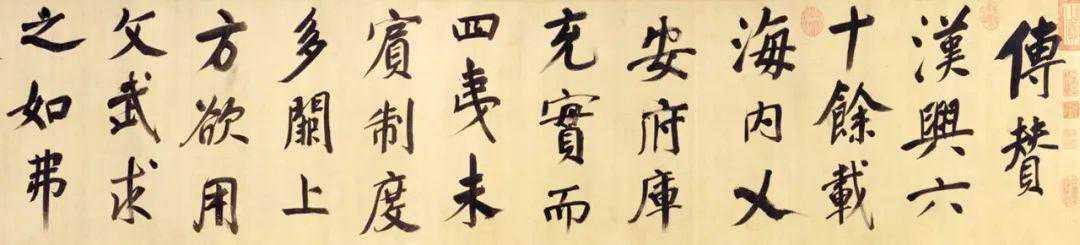 傳賛
漢興六
十餘載
海内乂
安府庫
充實而
四夷未
賓制度
多闕上
方欲用
文武求
之如弗